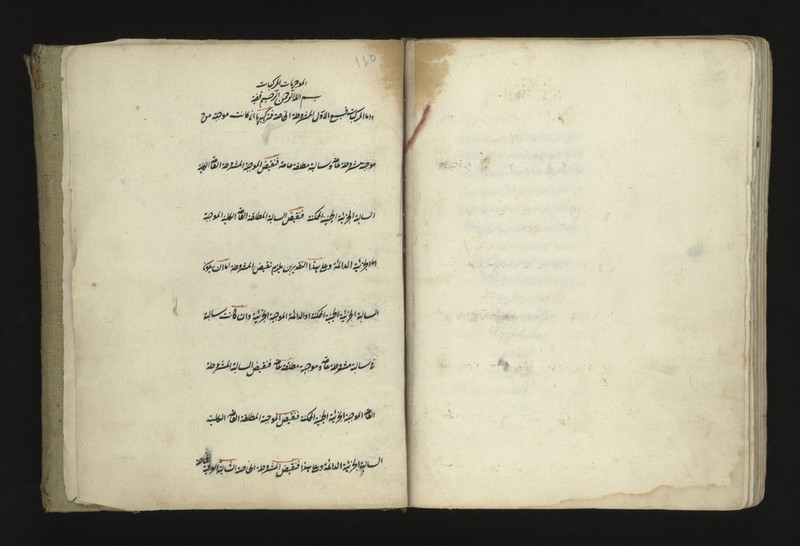 ١٣٥
الموجبات المركبات
بسم الله الرحمن الرحيم
واما المركبات فسبع الاول المشروطة الخاصة فتركيبها ان كانت موجبة من
موجبة مشروطة عامة وسالبة مطلقة عامة فنقيض الموجبة المشروطة العامة الكلية
السالبة الجزئية الحينية الممكنة فنقيض السالبة المطلقة العامة الكلية الموجبة
الجزئية الدائمة وعلى هذا التقدير يلزم نقيض المشروطة اما ان يكون
السالبة الجزئية الحينية الممكنة او الدائمة الموجبة الجزئية وان كانت سالبة
سالبة مشروطة عامة وموجبة مطلقة عامة فنقيض السالبة المشروطة
العامة الموجبة الجزئية الحينية الممكنة فنقيض الموجبة المطلقة العامة الكلية
السالبة الجزئية الدائمة وعلى هذا فنقيض المشروطة الخاصة السالبة